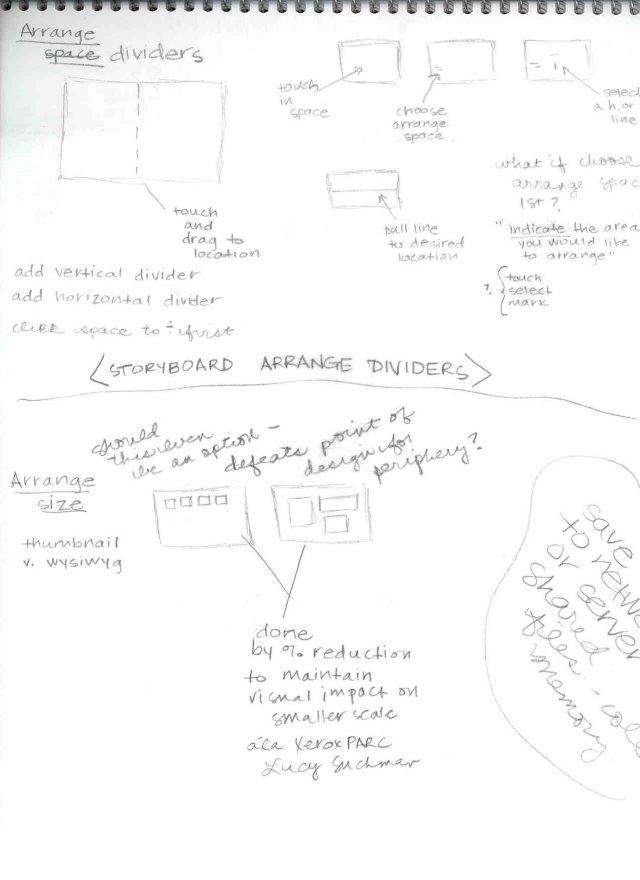 Arrange
space dividers
touch
and
drag to
location
add vertical divider
add horizontal divider
click space to ÷ first
touch
in
space
choose
arrange
space
select
a h. or
line
pull line
to desired
location
what if choose
arrange spac
1st?
"indicate the area
you would like
to arrange"
? { touch
select
mark
<STORYBOARD ARRANGE DIVIDERS>
should
this even
be an option –
defeats point of
design for
periphery?
Arrange
size
thumbnail
v. wysiwyg
done
by % reduction
to maintain
visual impact on
smaller scale
a'la Xerox PARC
Lucy Suchman
save
to netw
or server
shared
files -
memory